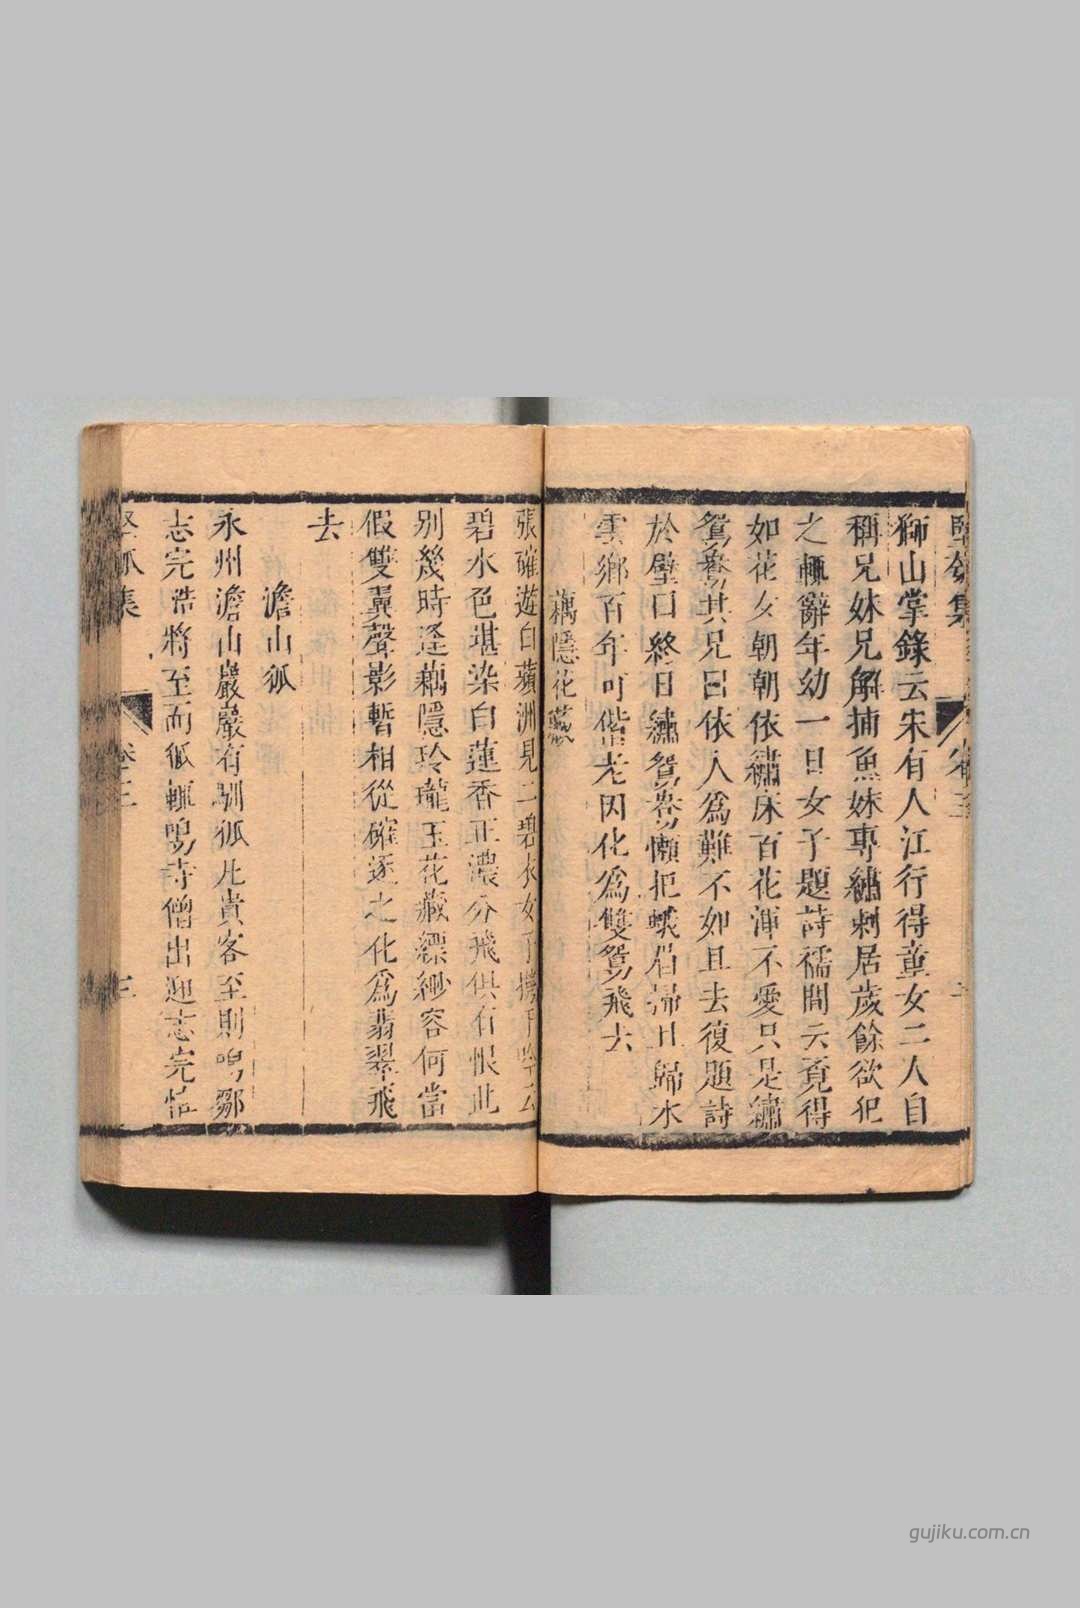 堅瓠集 卷三
獅山掌錄云宋有人江行得童女二人自
稱兄妹兄解捕魚妹專繡刺居歲餘欲犯
之輒辭年幼一日女子題詩襦間云竟得
如花女朝朝依繡床百花渾不愛只是繡
鴛鴦其兄曰依人爲難不如且去復題詩
於壁曰終日繡鴛鴦懶把蛾眉掃且歸水
雲鄉百年可偕老因化爲雙鴛飛去
藕隱花藏
張確遊白蘋洲見二碧衣女子携手吟云
碧水色堪染白蓮香正濃分飛俱有恨此
别幾時逢藕隱玲瓏玉花藏縹緲容何當
假雙翼聲影暫相從確逐之化爲翡翠飛
去
澹山狐
永州澹山巖巖有馴狐凡貴客至則鳴鄒
志完浩將至而狐輒鳴寺僧出迎志完怪
堅瓠集 卷三 三
gujiku.com.cn